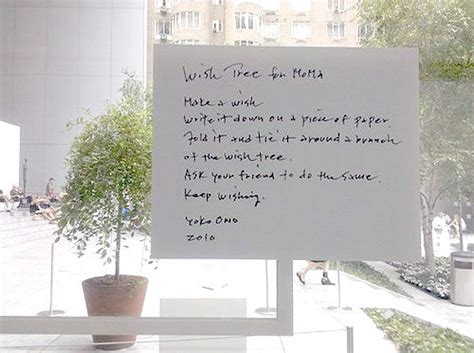 Wish Tree for MoMA
Make a wish
Write it down on a piece of paper
Fold it and tie it around a branch
of the wish tree.
Ask your friend to do the same.
Keep wishing.
Yoko Ono
2010